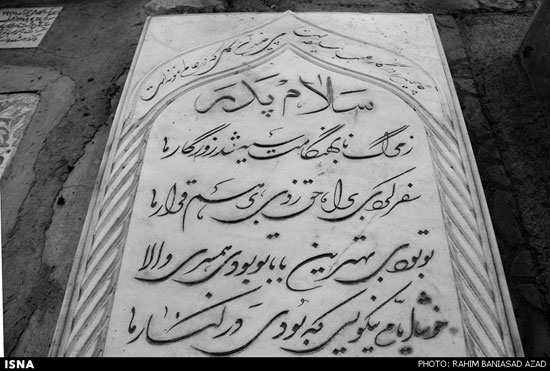 سلام پدر
ز مرگ نابهنگامت سیه شد روزگار ما
سفر کردی براه حق زدی برهم قرار ما
تو بودی بهترین بابا تو بودی همسری والا
خوشا ایام نیکویی که بودی در کنار ما
ISNA
PHOTO: RAHIM BANIASAD AZAD